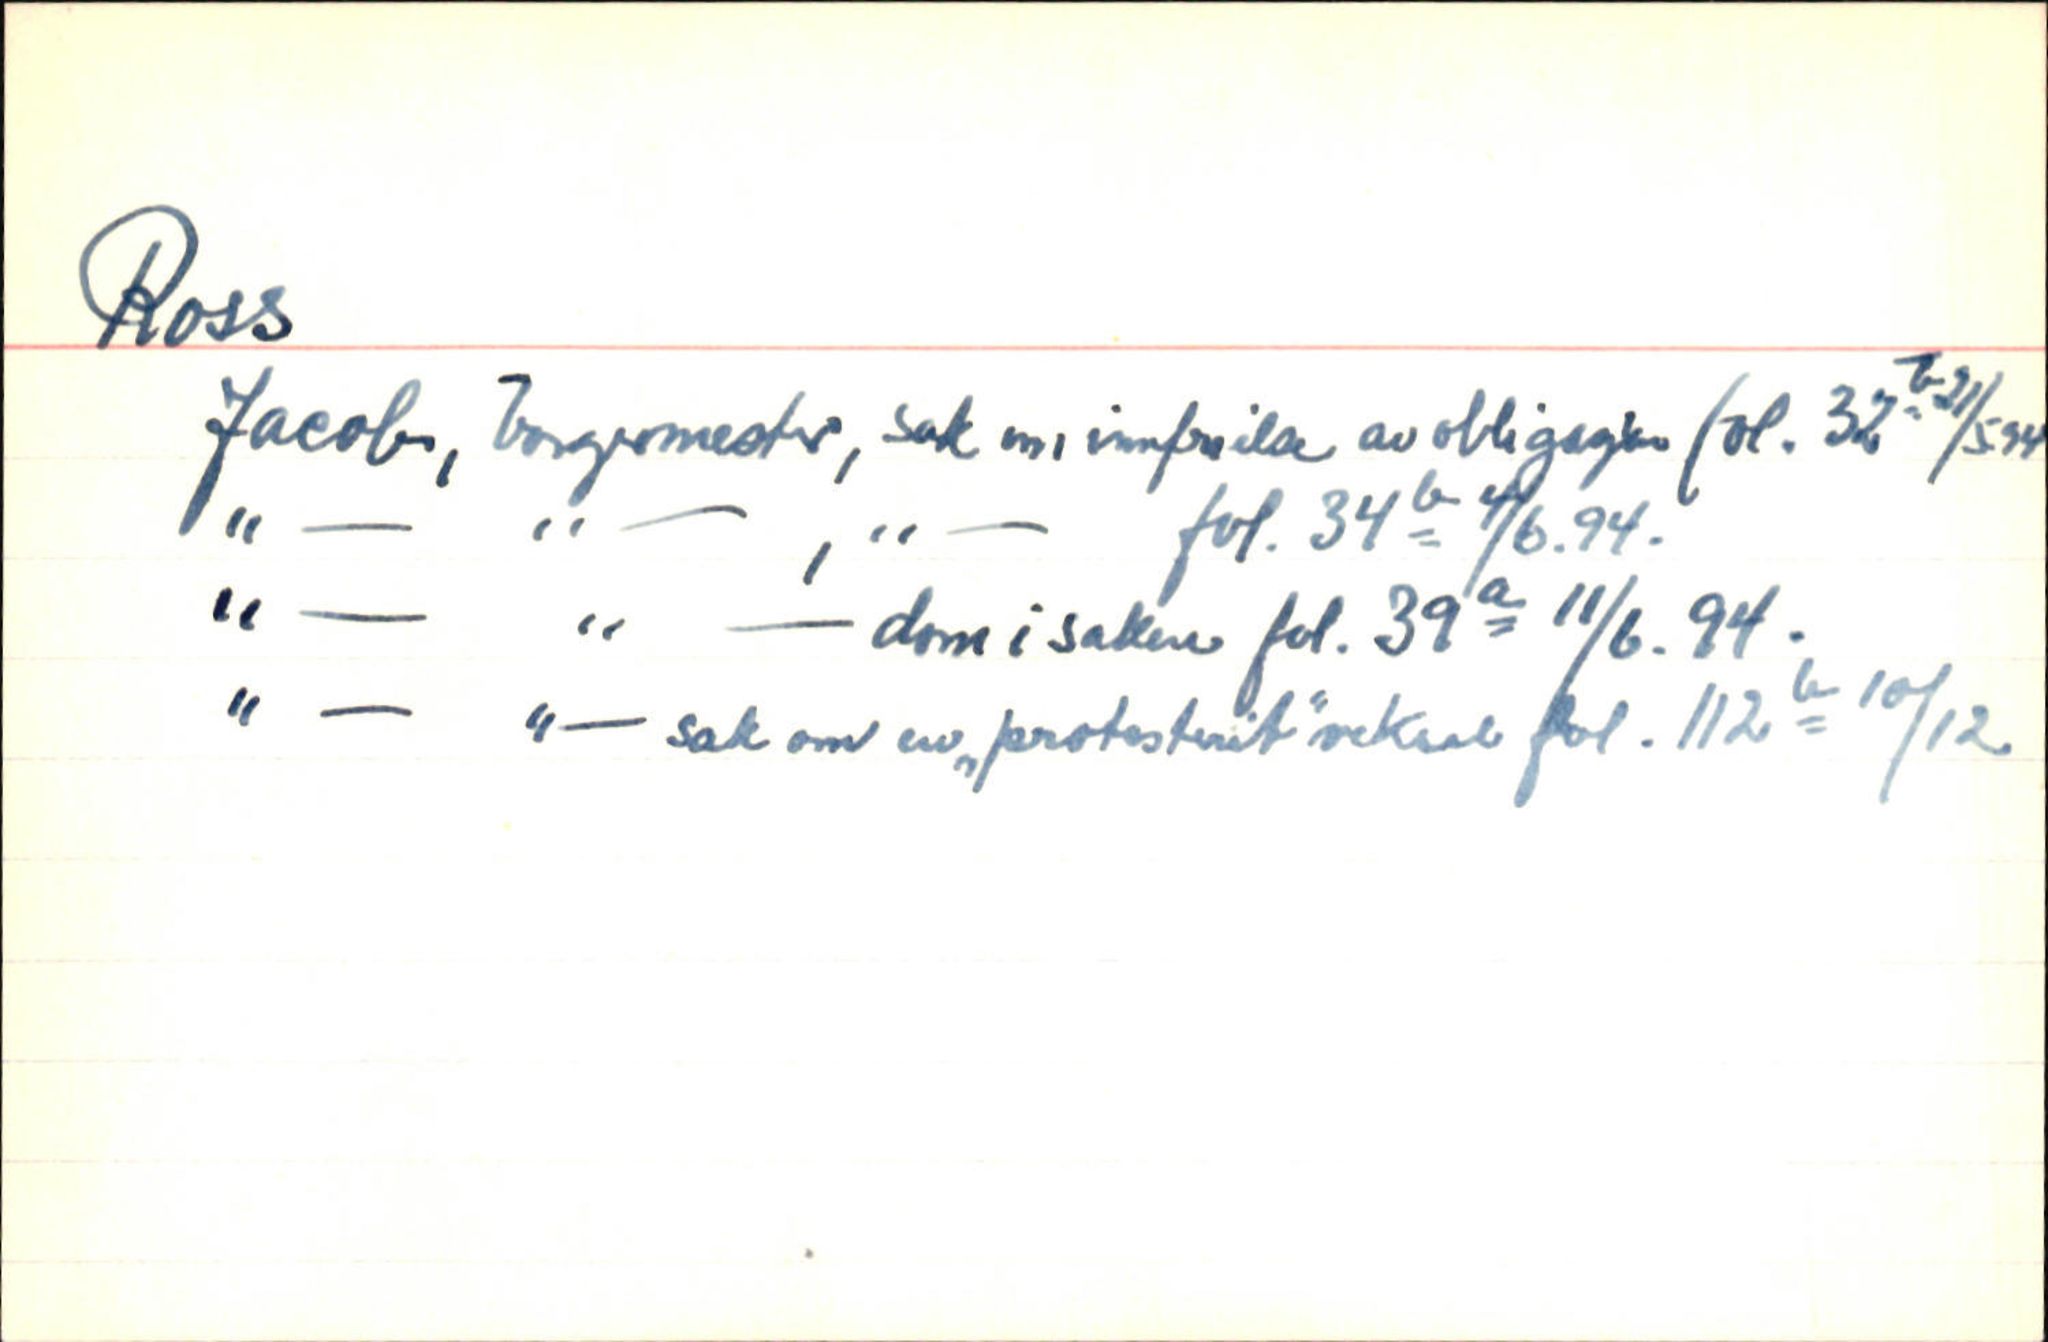 Ross
Jacob, borgermester, sak m, innfrielse av obligasjon fol. 32b 21/5.94
" — " — , " — fol. 34b 4/6.94.
" — " — dom i saken fol. 39a 11/6.94.
" — " — sak om en „protesterit" veksel fol. 112b 10/12